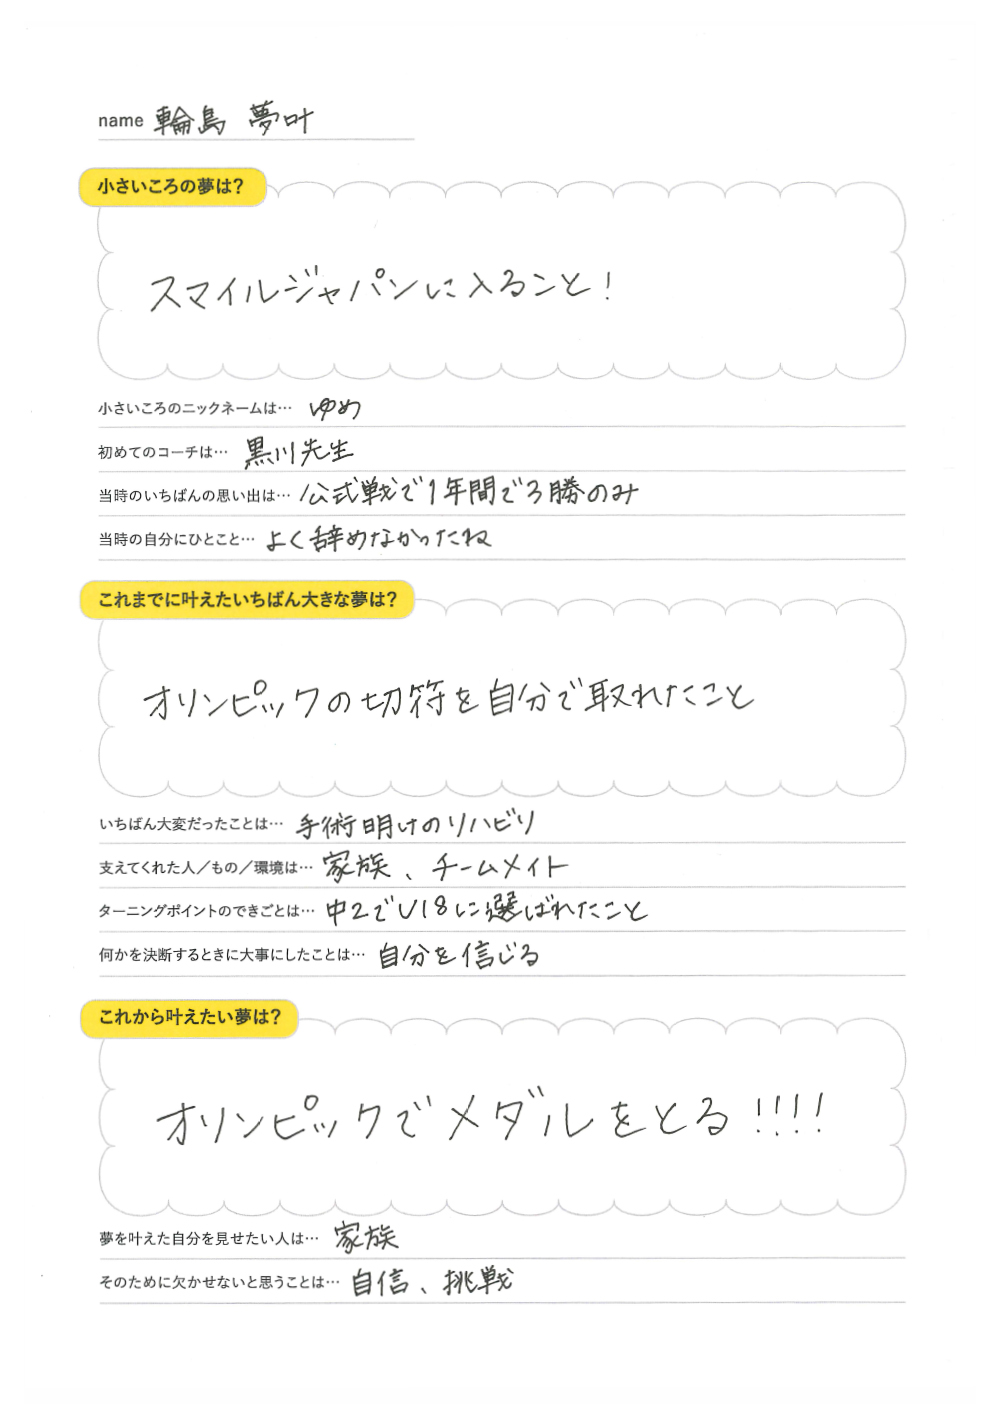 name 輪島 夢叶
小さいころの夢は？
スマイルジャパンに入ること！
小さいころのニックネームは… ゆめ
初めてのコーチは… 黒川先生
当時のいちばんの思い出は… 公式戦で1年間で3勝のみ
当時の自分にひとこと… よく辞めなかったね
これまでに叶えたいちばん大きな夢は？
オリンピックの切符を自分で取れたこと
いちばん大変だったことは… 手術明けのリハビリ
支えてくれた人／もの／環境は… 家族、チームメイト
ターニングポイントのできごとは… 中2でU18に選ばれたこと
何かを決断するときに大事にしたことは… 自分を信じる
これから叶えたい夢は？
オリンピックでメダルをとる！！！！
夢を叶えた自分を見せたい人は… 家族
そのために欠かせないと思うことは… 自信、挑戦